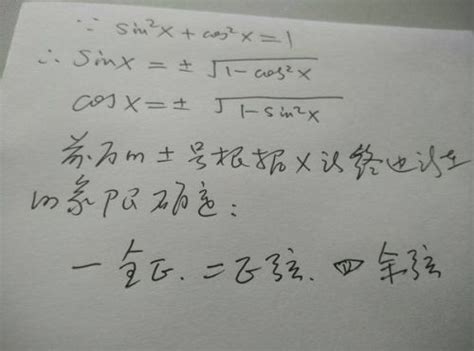 ∵ sin²x + cos²x = 1
∴ sinx = ± √1-cos²x
cosx = ± √1-sin²x
前面的±号根据x的终边所在
的象限确定:
一全正.二正弦.四余弦